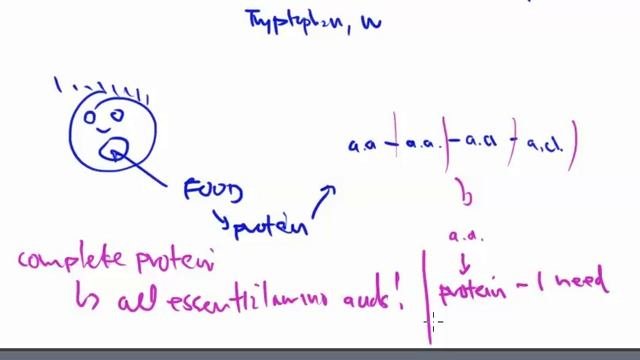 Tryptophan, W
a.a - a.a. - a.a - a.a.
FOOD
protein
a.a.
complete protein
all essential amino acids!
protein - I need